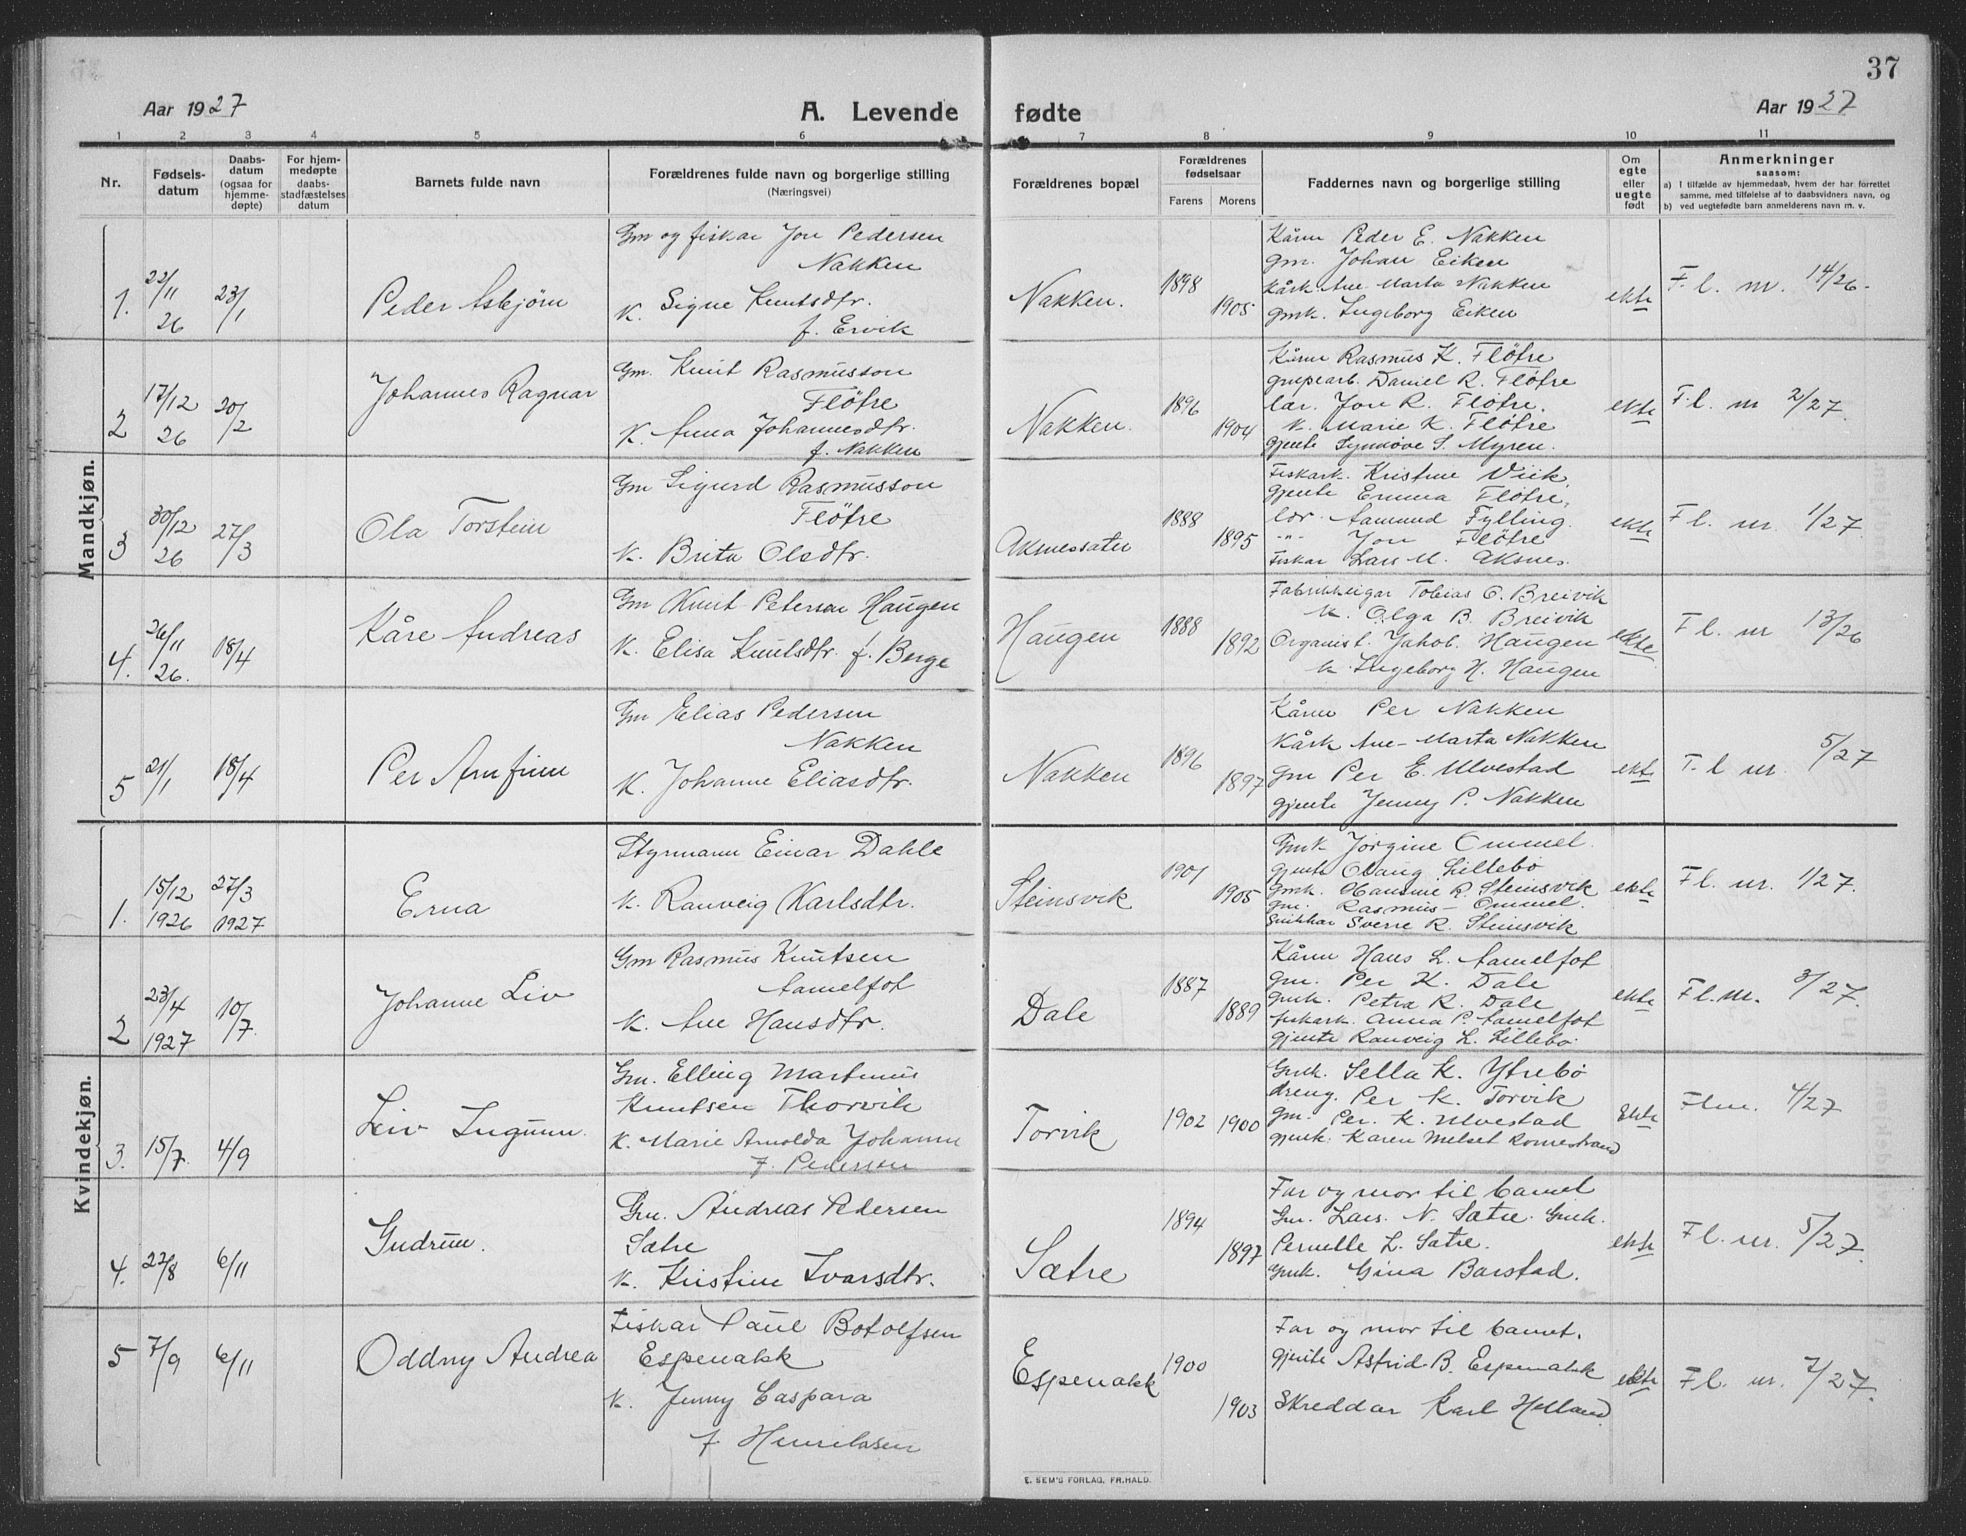 37
Aar 1927
A. Levende fødte
Aar 1927
1 2 3 4 5 6 7 8 9 10 11
Nr.
Fødsels-
datum
Daabs-
datum
(ogsaa for
hjemme-
døpte)
For hjem-
medøpte
daabs-
stadfæstelses
datum
Barnets fulde navn
Forældrenes fulde navn og borgerlige stilling
(Næringsvei)
Forældrenes bopæl
Forældrenes
fødselsaar
Farens Morens
Faddernes navn og borgerlige stilling
Om
egte
eller
uegte
født
Anmerkninger
saasom:
a) I tilfælde av hjemmedaab, hvem der har forrettet
samme, med tilføielse af to daabsvidners navn, og
b) ved uegtefødte barn anmelderens navn m. v.
Mandkjøn.
1. 22/11 26 23/1 Peder Asbjörn
Gm og fiskar Jon Pedersen
Nakken
K. Signe Knutsdtr.
f. Ervik
Nakken. 1898 1905
Kårm Peder E. Nakken
Gm. Johan Eiken
Kårk. Ane Marta Nakken
Gmk. Ingeborg Eiken
ekte
F. l. m. 14/26.
2 17/12 26 20/2 Johannes Ragnar
Gm. Knut Rasmusson
Flötre
K. Anna Johannesdtr.
f. Nakken
Nakken. 1896 1904
Kårm Rasmus K. Flötre
Daniel R. Flötre
lær. Jon R. Flötre.
K. Marie K. Flötre
Gjente Synnöve S. Myren.
ekte
F. l. m 2/27.
3 30/12 26 27/3 Ola Torstein
Gm Sigurd Rasmusson
Flötre
K. Brita Olsdtr.
Aknessæter 1888 1895
Fiskark. Kristine Viik,
Gjente Emma Flötre,
lær. Aamund Fylling.
-"- Jon Flötre
Fiskar Lars M. Aksnes.
ekte
F. l. nr. 1/27.
4. 26/11 26. 18/4 Kåre Andreas
Gm Knut Petersen Haugen
K. Elisa Knutsdtr. f. Berge
Haugen 1888 1892
Fabrikkeigar Tobias O. Breivik
K. Olga B. Breivik
Organist. Jakob. Haugen
K. Ingeborg H. Haugen
ekte.
F. l. nr 13/26
5 21/1 18/4 Per Arnfinn
Gm Elias Pedersen
Nakken
K. Johanne Eliasdtr.
Nakken 1896 1897
Kårm Per Nakken
Kårk Ane-Marta Nakken
Gm Per E. Ulvestad
Gjente Jenny P. Nakken
ekte
F. l nr. 5/27
Kvindekjøn.
1. 15/12 1926 27/3 1927 Erna
Styrmann Einar Dahle
K. Ranveig Karlsdtr.
Steinsvik 1901 1905
Gmk Jorgine Ommel.
Gjente Olaug Lillebö
Gmk. Hansine R. Steinsvik
Gm. Rasmus Ommel.
Snikkar Sverre R. Steinsvik
ekte
F l. nr. 1/27.
2 23/4 1927 10/7. Johanne Liv
Gm Rasmus Knutsen
Aamelfot
K. Ane Hansdtr.
Dale 1887 1889
Kårm Hans L. Aamelfot
Gm. Per K. Dale
Gmk. Petra R. Dale
Fiskark. Anna P. Aamelfot
Gjente Ranveig L. Lillebö.
ekte
F l. m. 3/27.
3. 15/7. 4/9 Liv Ingunn.
Gm. Elling Martinus
Knutsen Thorvik
K. Marie Arnolda Johanne
f. Pedersen
Torvik 1902 1900
Gmk. Sella K. Ytrebö
dreng. Per K. Torvik
Gm. Per. K. Ulvestad
Gjente. Karen Melset
Ekte
Flm. 4/27
4. 27/8 6/11 Gudrun.
Gm. Andreas Pedersen
Sætre
K. Kristine Ivarsdtr.
Sætre 1894 1897
Far og mor til barnet
Gm. Lars. N. Sætre. Gmk.
Pernelle L. Sætre.
Gmk. Gina Barstad.
ekte
F l. nr. 5/27.
5 7/9 6/11 Oddny Andrea
Fiskar Paul Botolfsen
Espenakk
K. Jenny Caspara
f Henriksen
Espenakk 1900 1903
Far og mor til barnet.
Gjente Astrid B. Espenakk
Skreddar Karl Helland.
ekte
F l. nr. 7/27.
E. SEM'S FORLAG, FR.HALD.